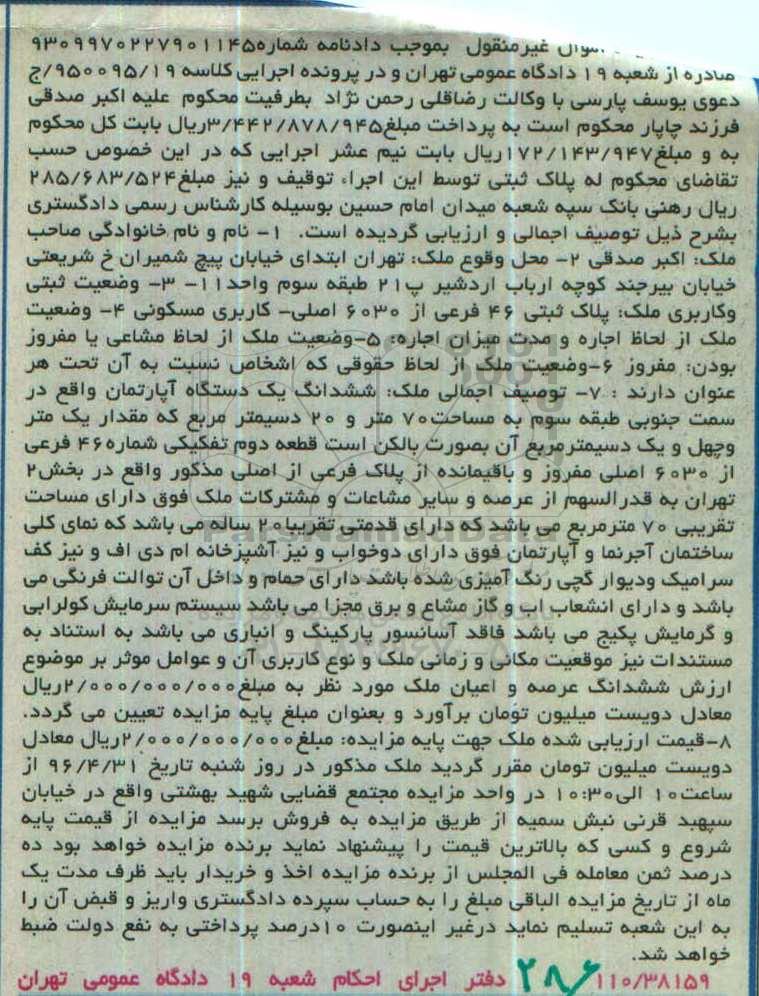 اموال غیرمنقول بموجب دادنامه شماره۹۳۰۹۹۷۰۲۲۷۹۰۱۱۴۵
صادره از شعبه ۱۹ دادگاه عمومی تهران و در پرونده اجرایی کلاسه ۹۵۰۰۹۵/۱۹/ج
دعوی یوسف پارسی با وکالت رضاقلی رحمن نژاد بطرفیت محکوم علیه اکبر صدقی
فرزند چاپار محکوم است به پرداخت مبلغ۳/۴۴۲/۸۷۸/۹۴۵ریال بابت کل محکوم
به و مبلغ۱۷۲/۱۴۳/۹۴۷ریال بابت نیم عشر اجرایی که در این خصوص حسب
تقاضای محکوم له پلاک ثبتی توسط این اجراء توقیف و نیز مبلغ۲۸۵/۶۸۳/۵۲۴
ریال رهنی بانک سپه شعبه میدان امام حسین بوسیله کارشناس رسمی دادگستری
بشرح ذیل توصیف اجمالی و ارزیابی گردیده است. ۱- نام و نام خانوادگی صاحب
ملک: اکبر صدقی ۲- محل وقوع ملک: تهران ابتدای خیابان پیچ شمیران خ شریعتی
خیابان بیرجند کوچه ارباب اردشیر پ۲۱ طبقه سوم واحد۱۱- ۳- وضعیت ثبتی
وکاربری ملک: پلاک ثبتی ۴۶ فرعی از ۶۰۳۰ اصلی- کاربری مسکونی ۴- وضعیت
ملک از لحاظ اجاره و مدت میزان اجاره: ۵-وضعیت ملک از لحاظ مشاعی یا مفروز
بودن: مفروز ۶-وضعیت ملک از لحاظ حقوقی که اشخاص نسبت به آن تحت هر
عنوان دارند : ۷- توصیف اجمالی ملک: ششدانگ یک دستگاه آپارتمان واقع در
سمت جنوبی طبقه سوم به مساحت۷۰ متر و ۲۰ دسیمتر مربع که مقدار یک متر
وچهل و یک دسیمترمربع آن بصورت بالکن است قطعه دوم تفکیکی شماره۴۶ فرعی
از ۶۰۳۰ اصلی مفروز و باقیمانده از پلاک فرعی از اصلی مذکور واقع در بخش۲
تهران به قدرالسهم از عرصه و سایر مشاعات و مشترکات ملک فوق دارای مساحت
تقریبی ۷۰ مترمربع می باشد که دارای قدمتی تقریبا۲۰ ساله می باشد که نمای کلی
ساختمان آجرنما و آپارتمان فوق دارای دوخواب و نیز آشپزخانه ام دی اف و نیز کف
سرامیک ودیوار گچی رنگ آمیزی شده باشد دارای حمام و داخل آن توالت فرنگی می
باشد و دارای انشعاب اب و گاز مشاع و برق مجزا می باشد سیستم سرمایش کولرابی
و گرمایش پکیج می باشد فاقد آسانسور پارکینگ و انباری می باشد به استناد به
مستندات نیز موقعیت مکانی و زمانی ملک و نوع کاربری آن و عوامل موثر بر موضوع
ارزش ششدانگ عرصه و اعیان ملک مورد نظر به مبلغ۲/۰۰۰/۰۰۰/۰۰۰ریال
معادل دویست میلیون تومان برآورد و بعنوان مبلغ پایه مزایده تعیین می گردد.
۸-قیمت ارزیابی شده ملک جهت پایه مزایده: مبلغ۲/۰۰۰/۰۰۰/۰۰۰ریال معادل
دویست میلیون تومان مقرر گردید ملک مذکور در روز شنبه تاریخ ۹۶/۴/۳۱ از
ساعت۱۰ الی۱۰:۳۰ در واحد مزایده مجتمع قضایی شهید بهشتی واقع در خیابان
سپهبد قرنی نبش سمیه از طریق مزایده به فروش برسد مزایده از قیمت پایه
شروع و کسی که بالاترین قیمت را پیشنهاد نماید برنده مزایده خواهد بود ده
درصد ثمن معامله فی المجلس از برنده مزایده اخذ و خریدار باید ظرف مدت یک
ماه از تاریخ مزایده الباقی مبلغ را به حساب سپرده دادگستری واریز و قبض آن را
به این شعبه تسلیم نماید درغیر اینصورت ۱۰درصد پرداختی به نفع دولت ضبط
خواهد شد.
۱۱۰/۳۸۱۵۹ ۲۸۶ دفتر اجرای احکام شعبه ۱۹ دادگاه عمومی تهران
ParsNamadData